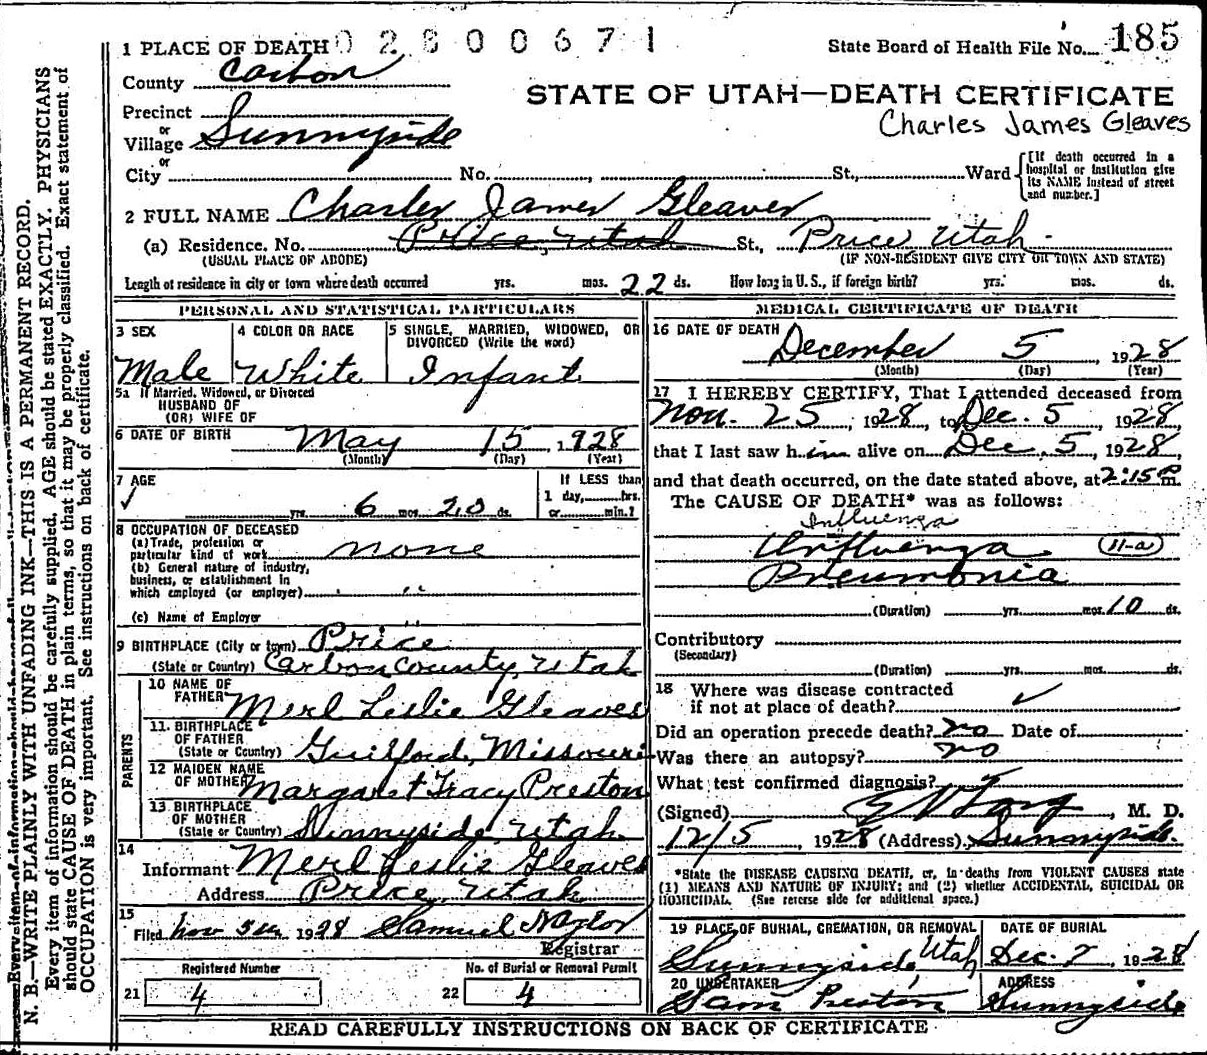 1 PLACE OF DEATH 02800671
State Board of Health File No. 185
County Carbon
STATE OF UTAH—DEATH CERTIFICATE
Charles James Gleaves
Precinct
or
Village Sunnyside
or
City No. , St., Ward
[If death occurred in a
hospital or institution give
its NAME instead of street
and number.]
2 FULL NAME Charles James Gleaves
(a) Residence. No. Price, Utah St., Price Utah.
(USUAL PLACE OF ABODE) (IF NON-RESIDENT GIVE CITY OR TOWN AND STATE)
Length of residence in city or town where death occurred yrs. mos. 22 ds. How long in U. S., if foreign birth? yrs. mos. ds.
PERSONAL AND STATISTICAL PARTICULARS
3 SEX
Male
4 COLOR OR RACE
White
5 SINGLE, MARRIED, WIDOWED, OR
DIVORCED (Write the word)
Infant
5a If Married, Widowed, or Divorced
HUSBAND OF
(OR) WIFE OF
6 DATE OF BIRTH May 15, 1928
(Month) (Day) (Year)
7 AGE
yrs. 6 mos. 20 ds.
If LESS than
1 day, hrs.
or min.?
8 OCCUPATION OF DECEASED
(a) Trade, profession or
particular kind of work none
(b) General nature of industry,
business, or establishment in
which employed (or employer) "
(c) Name of Employer "
9 BIRTHPLACE (City or town) Price
(State or Country) Carbon County, Utah
PARENTS
10 NAME OF
FATHER Merl Leslie Gleaves
11. BIRTHPLACE
OF FATHER
(State or Country) Guilford, Missouri
12 MAIDEN NAME
OF MOTHER Margaret Tracy Preston
13. BIRTHPLACE
OF MOTHER
(State or Country) Sunnyside, Utah
14
Informant Merl Leslie Gleaves
Address Price, Utah
15
Filed 5th 1928 Samuel Naylor
Registrar
Registered Number No. of Burial or Removal Permit
21 4 22 4
MEDICAL CERTIFICATE OF DEATH
16 DATE OF DEATH
December 5, 1928
(Month) (Day) (Year)
17 I HEREBY CERTIFY, That I attended deceased from
Nov. 25, 1928, to Dec. 5, 1928,
that I last saw him alive on Dec. 5, 1928,
and that death occurred, on the date stated above, at 2:15 P m.
The CAUSE OF DEATH* was as follows:
Influenza
Influenza (11-a)
Pneumonia
(Duration) yrs. mos. 10 ds.
Contributory
(Secondary)
(Duration) yrs. mos. ds.
18 Where was disease contracted
if not at place of death? ✓
Did an operation precede death? no Date of
Was there an autopsy? no
What test confirmed diagnosis?
(Signed) , M. D.
12/5, 1928 (Address) Sunnyside.
*State the DISEASE CAUSING DEATH, or, in deaths from VIOLENT CAUSES state
(1) MEANS AND NATURE OF INJURY; and (2) whether ACCIDENTAL, SUICIDAL OR
HOMICIDAL. (See reverse side for additional space.)
19 PLACE OF BURIAL, CREMATION, OR REMOVAL
Sunnyside, Utah
DATE OF BURIAL
Dec. 7, 1928
20 UNDERTAKER
Sam Preston
ADDRESS
Sunnyside
READ CAREFULLY INSTRUCTIONS ON BACK OF CERTIFICATE
N. B.—WRITE PLAINLY WITH UNFADING INK—THIS IS A PERMANENT RECORD.
Every item of information should be carefully supplied. AGE should be stated EXACTLY. PHYSICIANS
should state CAUSE OF DEATH in plain terms, so that it may be properly classified. Exact statement of
OCCUPATION is very important. See instructions on back of certificate.